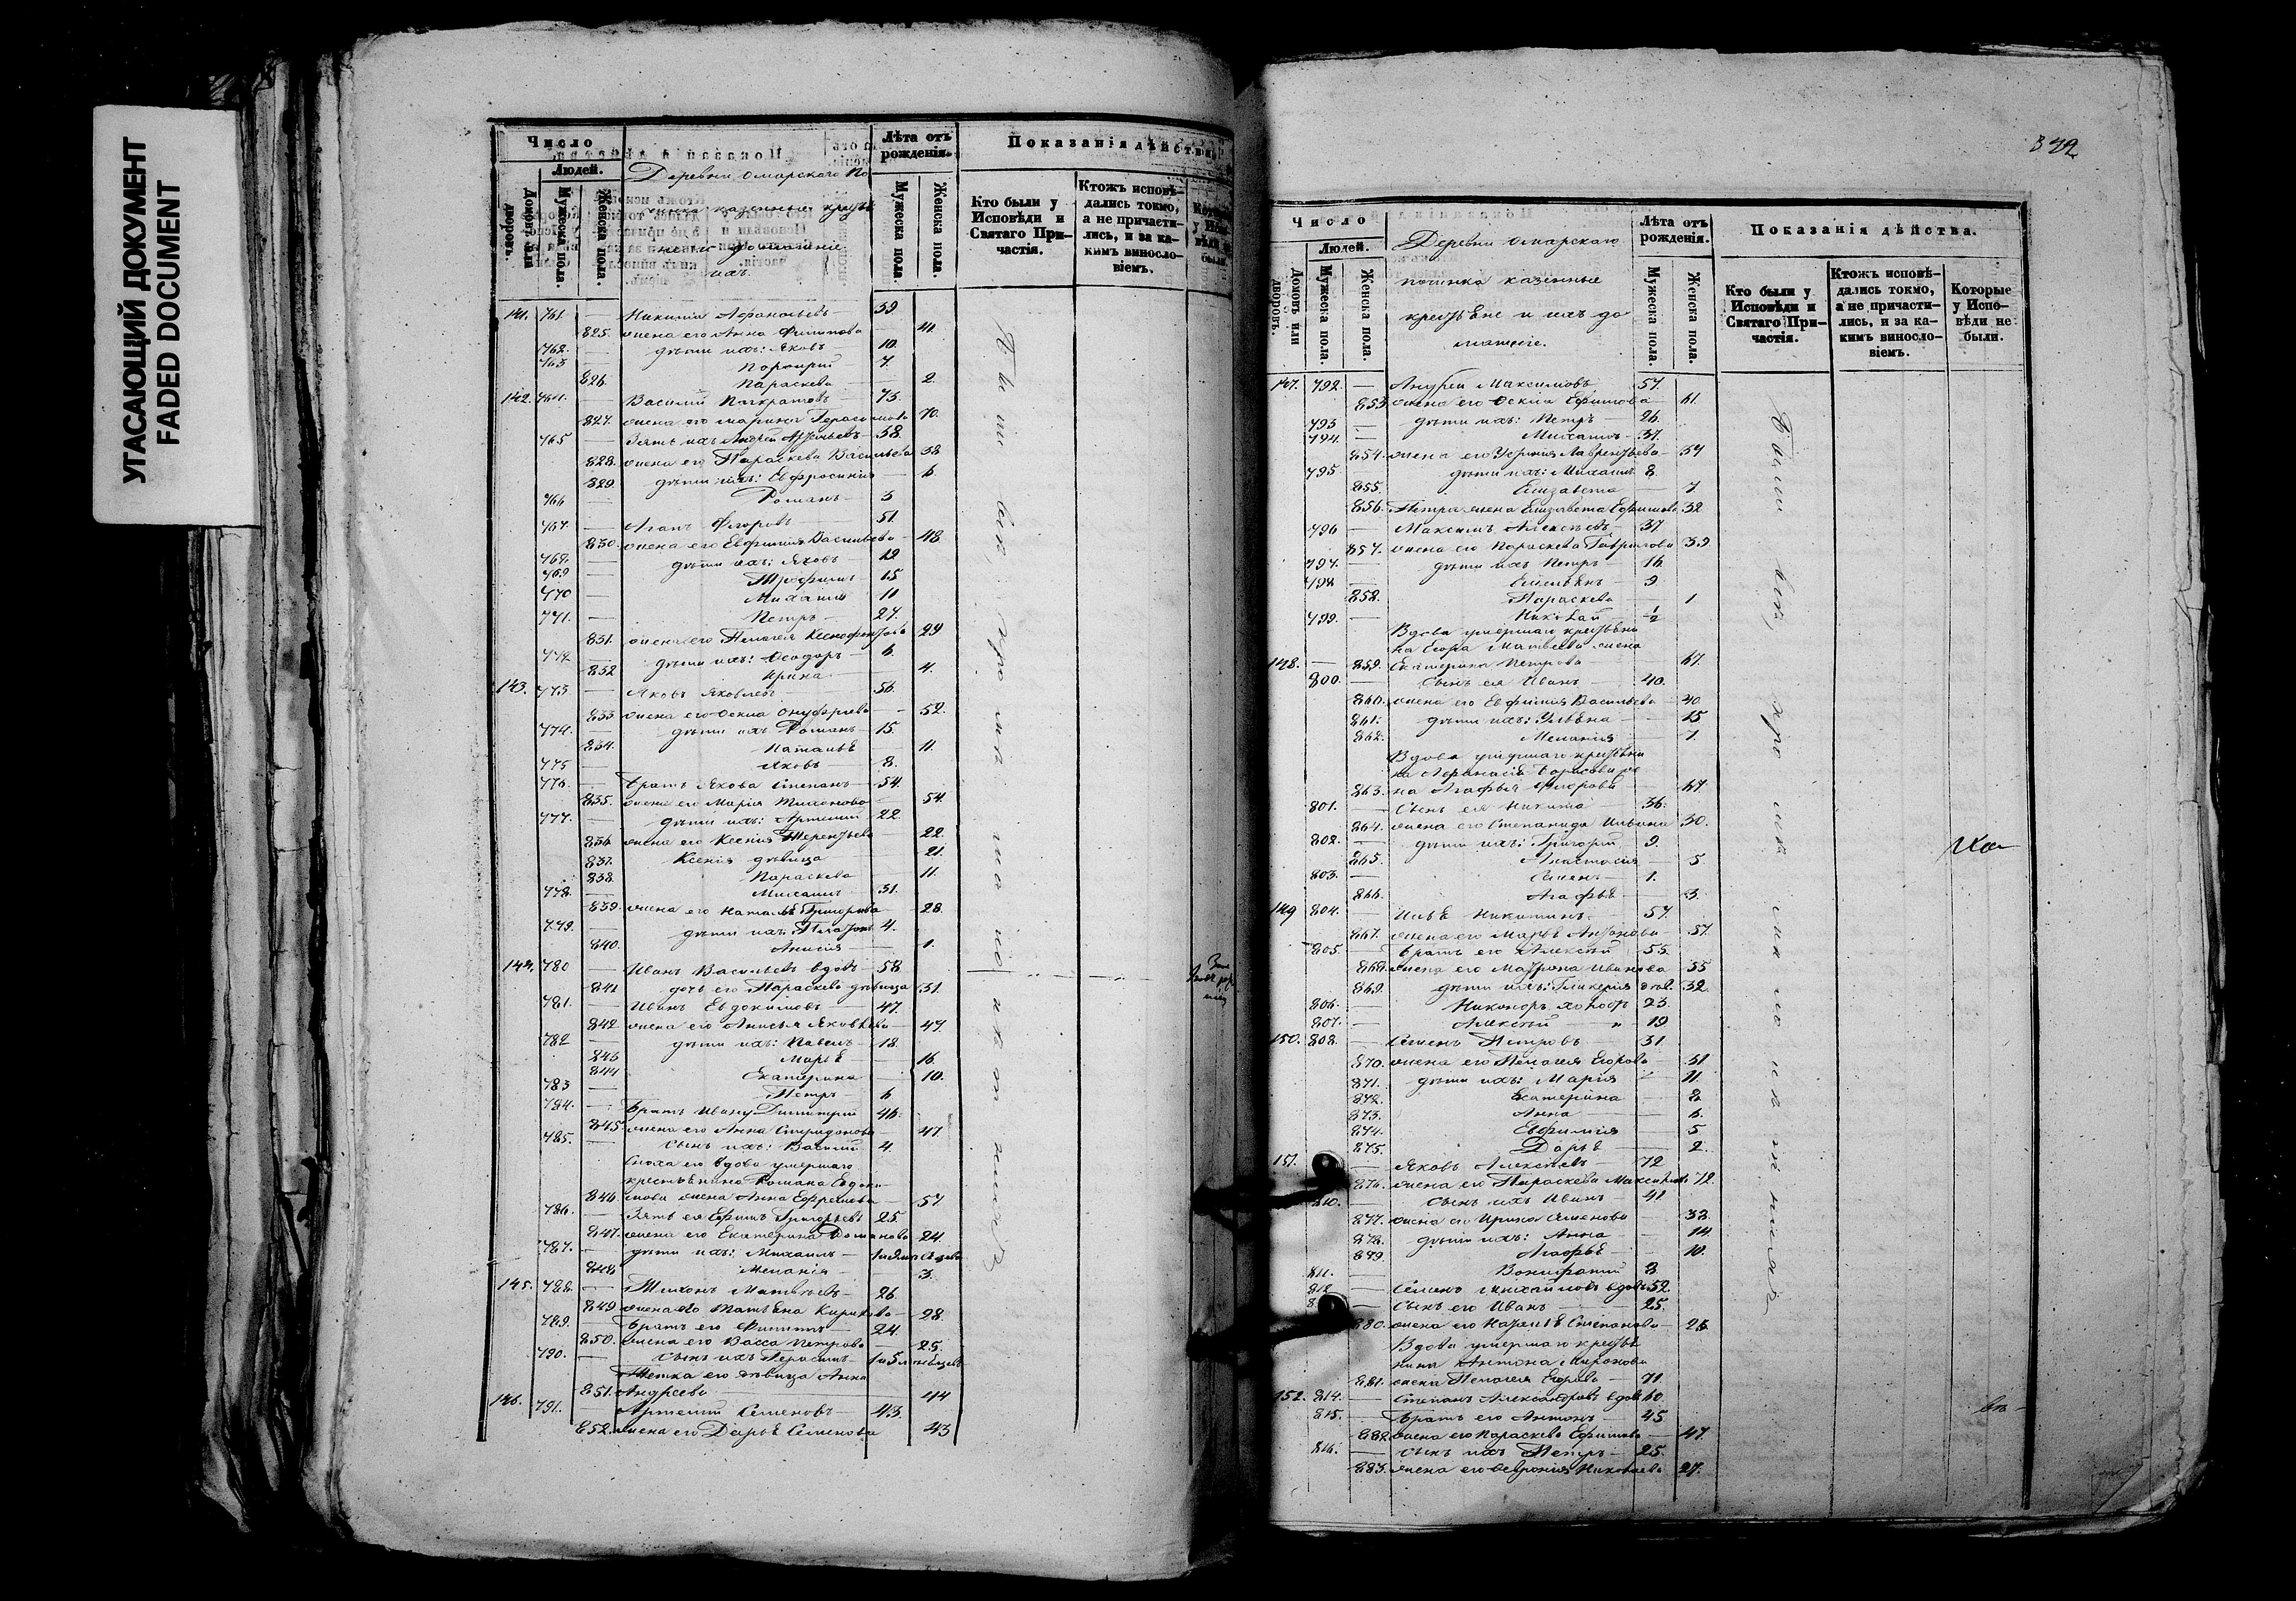 УГАСАЮЩИЙ ДОКУМЕНТ
FADED DOCUMENT
Число
Людей.
Домовъ или дворовъ.
Мужеска пола.
Женска пола.
Деревни Омарскаго По
чинка казенные крестья
не и домашніе
ихъ.
Лѣта отъ рожденія.
Мужеска пола.
Женска пола.
Показанія дѣйства
Кто были у Исповѣди и Святаго Причастія.
Ктожъ исповѣдались токмо, а не причастились, и за какимъ винословіемъ.
141. 761. — Никита Афанасьевъ 39
825. жена его Анна Филипова 41.
762. — дѣти ихъ: Яковъ 10.
763 — Порфирій 7.
826. Параскева 2.
142. 764. — Василій Панкратовъ 73.
827. жена его Марина Герасимова 70.
765 — Зять ихъ Андрей 38.
828. жена его Параскева Васильева 38
829. дѣти ихъ: Евфросинія 6.
766 — Романъ 3
767. — Ѳедоровъ 51.
830. жена его Евфимія Васильева 48
768. — дѣти ихъ: Яковъ 19
769 — Трофимъ 15
770 — Михаилъ 11
771. — Петръ 27.
831. жена его Пелагея Ксенофонтова 29
772 — дѣти ихъ: Ѳеодоръ 6.
832 Ирина 4.
143. 773. — Яковъ Яковлевъ 56.
833 жена его Ѳекла Онуфріева 52.
774. — дѣти ихъ Романъ 15.
834. Наталья 11.
775 — Яковъ 8.
776. — Братъ Якова Степанъ 54.
835. жена его Марія Тихонова 54.
777. — дѣти ихъ: Артемій 22
836 жена его Ксенія Терентьева 22.
837. Ксенія дѣвица 21.
838. Параскева 11.
778. — Михаилъ 31.
839. жена его Наталья Григорьева 28.
779. — дѣти ихъ: Платонъ 4.
840. Анисія 1.
144. 780 — Иванъ Васильевъ вдовъ 58
841 дочь его Параскева дѣвица 31.
781. — Иванъ Евдокимовъ 47.
842. жена его Анисья Яковлева 47.
782 — дѣти ихъ: Павелъ 18.
843 Марья 16.
844 Екатерина 10.
783 — Петръ 6
784. — Братъ Ивану Димитрій 46.
845. жена его Анна Спиридонова 41.
785. — сынъ ихъ: Василій 4.
Сноха его вдова умершаго
крестьянина Романа Евдоки
846. мова жена Анна Ефремова 57.
786. — Зять ея Ефимъ Григорьевъ 25.
847. жена его Екатерина Романова 24.
787. — дѣти ихъ: Михаилъ
848. Меланія 3.
145. 788. — Тихонъ Матвѣевъ 26
849. жена его Татьяна Кирилова 28.
789. — Братъ его Филиппъ 24.
850. жена его Васса Петрова 25.
790. — сынъ ихъ Герасимъ
Тетка его дѣвица Анна
851. Андреева 44
146. 791. — Артемій Семеновъ 43.
852. жена его Дарья Семенова 43
Число
Людей.
Домовъ или дворовъ.
Мужеска пола.
Женска пола.
Деревни Омарскаго
починка казенные
крестьяне и ихъ до
машніе.
Лѣта отъ рожденія.
Мужеска пола.
Женска пола.
Показанія дѣйства.
Кто были у Исповѣди и Святаго Причастія.
Ктожъ исповѣдались токмо, а не причастились, и за какимъ винословіемъ.
Которые у Исповѣди не были.
147. 792. — Андрей Максимовъ 57.
853 жена его Ѳекла Ефимова 61.
793 — дѣти ихъ: Петръ 26.
794. — Михаилъ 37.
854. жена его Устинія Лаврентьева 37
795 — дѣти ихъ: Михаилъ 8.
855. Елизавета 7.
856. Петра жена Елизавета Ефимова 32
796 — Максимъ Алексѣевъ 37.
857. жена его Параскева Гаврилова 39
797. — дѣти ихъ Петръ 16.
798 — Емельянъ 9
858. Параскева 1.
799. — Николай ½
Вдова умершаго крестьяни
на Егора Матвѣева жена
148. — 859. Екатерина Петрова 67.
800. — сынъ ея Иванъ 40.
860. жена его Евфимія Васильева 40.
861. дѣти ихъ: Ульяна 15
862. Меланія 1.
Вдова умершаго крестьяни
на Афанасія Борисова же
863. на Агафья Ѳедорова 67.
801. — Сынъ ея Никита 36.
864. жена его Степанида Ильина 30.
802. — дѣти ихъ: Григорій 9.
865. Анастасія 5
803. — Семенъ 1.
866. Агафья 3.
149 804. — Илья Никитинъ 57.
867. жена его Марья Антонова 57.
805. — Братъ его Алексѣй 55.
868 жена его Матрона Иванова 55
869. дѣти ихъ: Гликерія 32.
806. — Никаноръ холост 23.
807. — Алексѣй " 19
150. 808. — Семенъ Петровъ 31.
870. жена его Пелагея Егорова 31
871. дѣти ихъ: Марія 11.
872. Екатерина 8.
873. Анна 6.
874. Евфимія 5
875. Дарья 2.
151. — Яковъ Алексѣевъ 72
876. жена его Параскева 72.
810. — сынъ ихъ Иванъ 41
877. жена его Ирина Семенова 38.
878. дѣти ихъ: Анна 14.
879. Агафья 10.
811. — Вонифатій 3.
812 — Семенъ Михайловъ вдовъ 52.
— Сынъ его Иванъ 25.
880. жена его Наталья Степанова 25.
Вдова умершаго крестья
нина Антона Миронова
881. жена Пелагея Егорова 71.
152. 814. — Степанъ Александровъ вдовъ 60.
815. — Братъ его Антонъ 45
882 жена его Параскева Ефимова 47.
816. — сынъ ихъ Петръ 25.
883. жена его Ѳевронія Николаева 27.